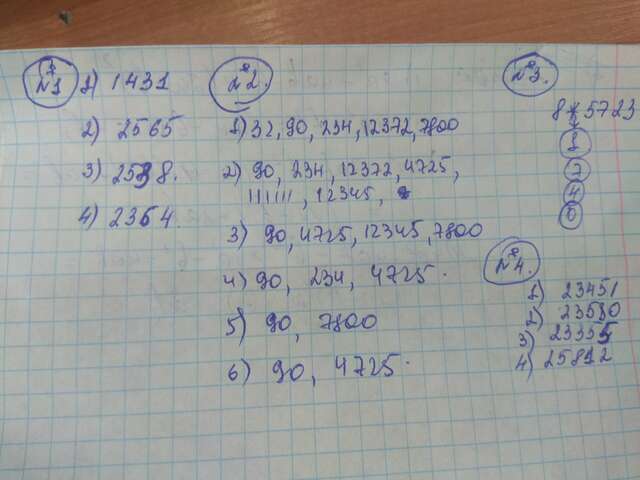 №1
1) 1431
2) 2565
3) 2538.
4) 2364.
№2.
1) 32, 90, 234, 12372, 7800
2) 90, 234, 12372, 4725,
111111, 12345,
3) 90, 4725, 12345, 7800
4) 90, 234, 4725.
5) 90, 7800
6) 90, 4725.
№3.
8*5723
1
7
4
0
№4.
1) 23451
2) 23580
3) 23355
4) 25812